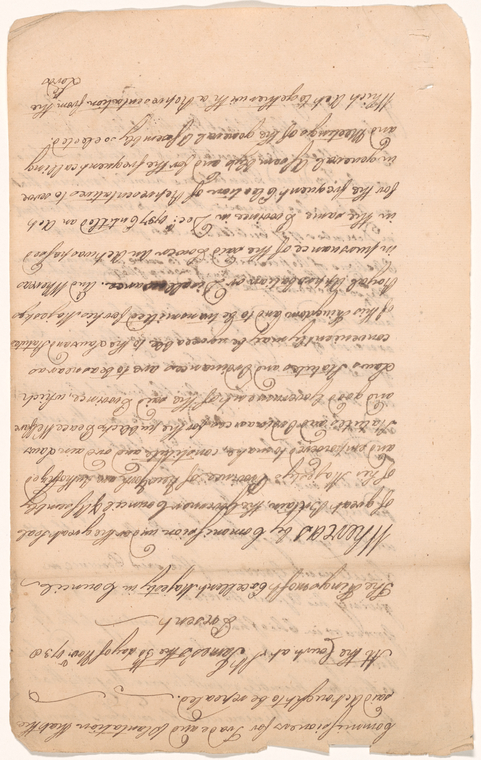 Commissioners for Trade and Plantation that the
said Act ought to be repealed.
At the Court at St James's the 30 day of Novr 1738
Present
The Kings most Excellent Majesty in Council
Whereas by Commission under the great Seal
of great Britain, the Governour Council & Assembly
of his Majestys Province of New York are authorized
and empowered to make, constitute and ordain Laws
Statutes and Ordinances for the publick Peace Welfare
and good Government of the said Province which
Laws Statutes and Ordinances are to be as near as
conveniently may be agreeable to the Laws and Statutes
of this Kingdom and to be transmitted for his Majestys
Royal Approbation or Disallowance. And Whereas
in pursuance of the said Powers an Act was passed
in the same Province in Decr: 1737 Entitled an Act
for the frequent Election of Representatives to serve
in general Assembly and for the frequent calling
and Meeting of the general Assembly so elected.
Which Act together with a Representation from the
Lords